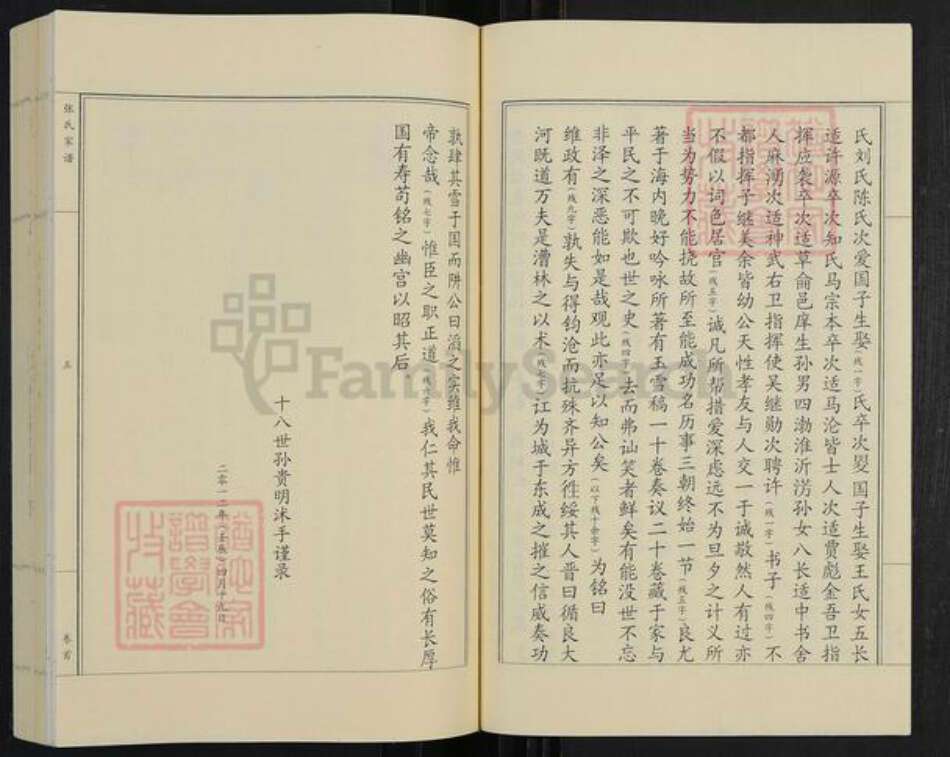 氏刘氏陈氏次爱国子生娶(残一字)氏卒次燮国子生娶王氏女五长
适许源卒次知氏马宗本卒次适马沦皆士人次适贾彪金吾卫指
挥应袭卒次适草仑邑庠生孙男四渤淮沂涝孙女八长适中书舍
人麻湧次适神武右卫指挥使吴继勋次聘许(残一字)书子(残四字)不
都指挥子继美余皆幼公天性孝友与人交一于诚敬然人有过亦
不假以词色居官(残五字)诚凡所帮措爱深虑远不为旦夕之计义所
当为势力不能挠故所至能成功名历事三朝终始一节(残五字)良尤
著于海内晚好吟咏所著有玉雪稿一十卷奏议二十卷藏于家与
平民之不可欺也世之史(残四字)去而弗讪笑者鲜矣有能没世不忘
非泽之深恶能如是哉观此亦足以知公矣(以下残十余字)为铭曰
维政有(残九字)孰失与得钧沧而抗殊齐异方徃绥其人晋曰循良大
河既道万夫是漕林之以术(残七字)讧为城于东成之摧之信威奏功
孰肆其雪于国而阱公曰滔之实维我命惟
帝念哉(残七字)惟臣之职正道(残六字)我仁其民世莫知之俗有长厚
国有寿苟铭之幽宫以昭其后
十八世孙贵明沭手谨录
二零一二年(壬辰)四月十九日
张氏家谱
五
卷首